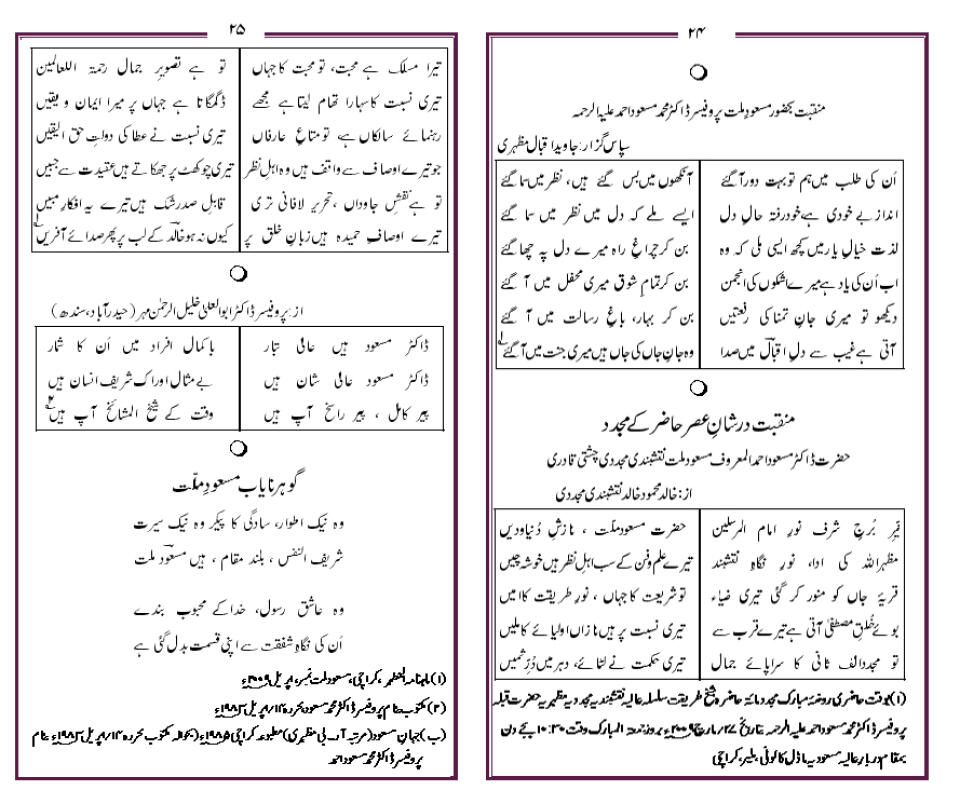 ۲۴
منقبت بحضور مسعودِ ملت پروفیسر ڈاکٹر محمد مسعود احمد علیہ الرحمہ
سپاس گزار: جاوید اقبال مظہری
اُن کی طلب میں ہم تو بہت دور آ گئے آنکھوں میں بس گئے ہیں، نظر میں سما گئے
انداز بے خودی ہے خود رفتہ حالِ دل ایسے ملے کہ دل میں نظر میں سما گئے
لذت خیالِ یار میں کچھ ایسی ملی کہ وہ بن کر چراغِ راہ میرے دل پہ چھا گئے
اب اُن کی یاد ہے میرے اشکوں کی انجمن بن کر تمام شوق میری محفل میں آ گئے
دیکھو تو میری جانِ تمنا کی رفعتیں بن کر بہار، باغِ رسالت میں آ گئے
آتی ہے غیب سے دلِ اقبالؔ میں صدا وہ جانِ جاں کی جاں ہیں میری جنت میں آ گئے۱
منقبت در شانِ عصرِ حاضر کے مجدد
حضرت ڈاکٹر مسعود احمد المعروف مسعود ملت نقشبندی مجددی چشتی قادری
از: خالد محمود خالد نقشبندی مجددی
قمرِ بُرجِ شرف نورِ امام المرسلین حضرت مسعود ملّت ، نازشِ دُنیا و دیں
مظہر اللہ کی ادا، نورِ نگاہِ نقشبند تیرے علم و فن کے سب اہلِ نظر ہیں خوشہ چیں
قریۂ جاں کو منور کر گئی تیری ضیاء تو شریعت کا جہاں ، نورِ طریقت کا امیں
بوئے خُلقِ مصطفیٰ آتی ہے تیرے قرب سے تیری نسبت پر ہیں نازاں اولیائے کاملیں
تو مجدد الف ثانی کا سراپائے جمال تیری حکمت نے لٹائے، دہر میں دُرِّ ثمیں
(۱) بوقت حاضری روضۂ مبارک مجدد مائۃ حاضرہ شیخ طریقت سلسلہ عالیہ نقشبندیہ مجددیہ مظہریہ حضرت قبلہ
پروفیسر ڈاکٹر محمد مسعود احمد علیہ الرحمہ بتاریخ ۲۷/مارچ ۲۰۰۹ء بروز جمعۃ المبارک وقت ۱۰:۳۰ بجے دن
بمقام دربار عالیہ مسعودیہ ماڈل کالونی، ملیر، کراچی
۲۵
تیرا مسلک ہے محبت، تو محبت کا جہاں تو ہے تصویرِ جمال رحمۃ اللعالمین
تیری نسبت کا سہارا تھام لیتا ہے مجھے ڈگمگاتا ہے جہاں پر میرا ایمان و یقیں
رہنمائے سالکاں ہے تو متاعِ عارفاں تیری نسبت نے عطا کی دولتِ حق الیقیں
جو تیرے اوصاف سے واقف ہیں وہ اہلِ نظر تیری چوکھٹ پر جھکاتے ہیں عقیدت سے جبیں
تو ہے نقشِ جاوداں ، تحریر لافانی تری قابلِ صد رشک ہیں تیرے یہ افکارِ مبیں
تیرے اوصافِ حمیدہ ہیں زبانِ خلق پر کیوں نہ ہو خالدؔ کے لب پر پھر صدائے آفریں۱
از: پروفیسر ڈاکٹر ابوالعلیٰ خلیل الرحمٰن مہر (حیدرآباد، سندھ)
ڈاکٹر مسعود ہیں عالی تبار با کمال افراد میں اُن کا شمار
ڈاکٹر مسعود عالی شان ہیں بے مثال اوراک شریف انسان ہیں
پیر کامل ، پیر راسخ آپ ہیں وقت کے شیخ المشائخ آپ ہیں۲
گوہرِ نایاب مسعودِ ملّت
وہ نیک اطوار، سادگی کا پیکر وہ نیک سیرت
شریف النفس ، بلند مقام ، ہیں مسعودؔ ملت
وہ عاشقِ رسول، خدا کے محبوب بندے
اُن کی نگاہِ شفقت سے اپنی قسمت بدل گئی ہے
(۱) ماہنامہ المظہر، کراچی، مسعود ملت نمبر، اپریل ۲۰۰۹ء
(۲) مکتوب بنام پروفیسر ڈاکٹر محمد مسعود محررہ ۱۴/اپریل ۱۹۸۲ء
(ب) جہانِ مسعود (مرتبہ آر۔ بی مظہری) مطبوعہ کراچی ۱۹۸۵ء (بحوالہ مکتوب محررہ ۱۴/اپریل ۱۹۸۲ء بنام
پروفیسر ڈاکٹر محمد مسعود احمد